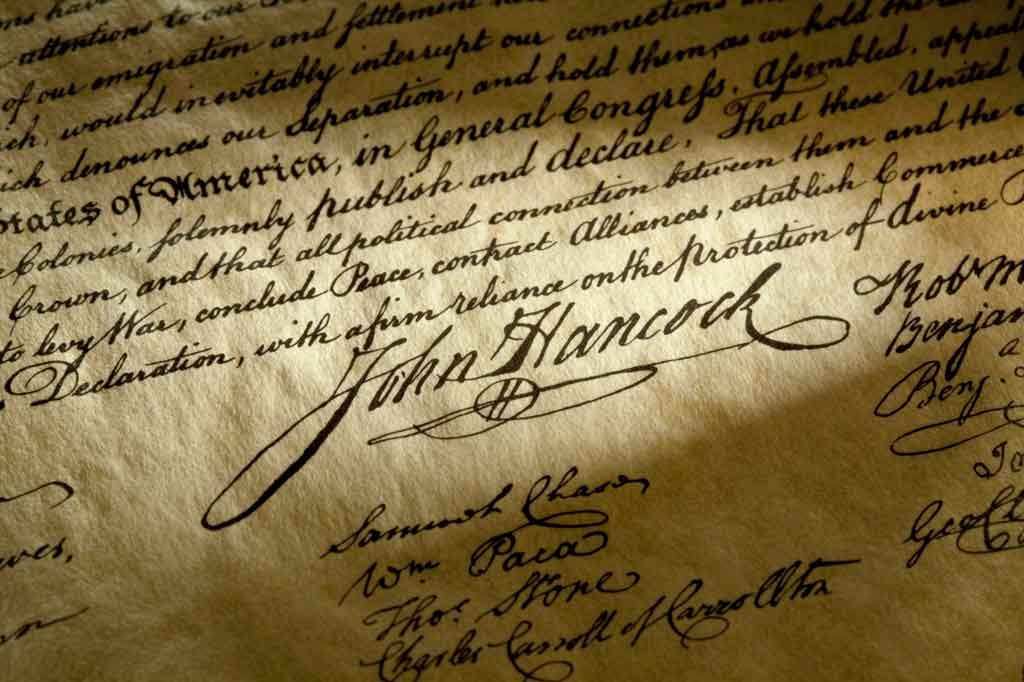 have
attentions to our
of our emigration and ſettlement
would inevitably interrupt our connections
denounces our Separation, and hold them, as we hold the
States of America, in General Congreſs, Aſsembled, appeal
Colonies, ſolemnly publish and declare, That these United
Crown, and that all political connection between them and the
to levy War, conclude Peace, contract Alliances, establish Commerce
Declaration, with a firm reliance on the protection of divine
John Hancock
Robt M
Benjam
Benj.
Samuel Chase
Wm. Paca
Thos. Stone
Charles Carroll of Carrollton
Geo. Cl